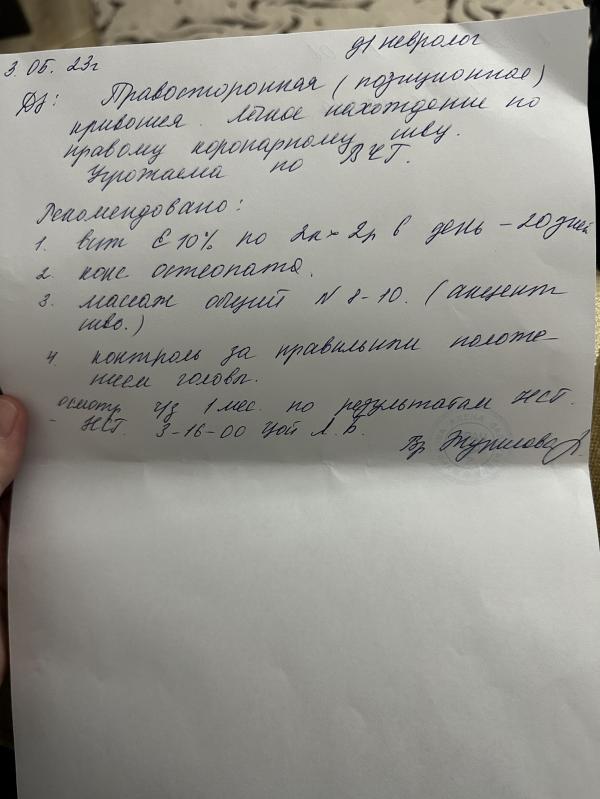 3.05.23г
д/невролог
Дз: Правосторонная (позиционное)
кривошея. Лёгкое нахождение по
правому коронарному шву.
Угрожаема по ВЧГ.
Рекомендовано:
1. вит Е 10% по 2к х 2р в день - 20 дней
2. конс остеопата.
3. массаж общий N 8-10. (акцент
шво.)
4. контроль за правильным положе-
нием головы.
осмотр ч/з 1 мес. по результатам НСГ.
- НСГ. 3-16-00 Цой Л. Б.
Вр